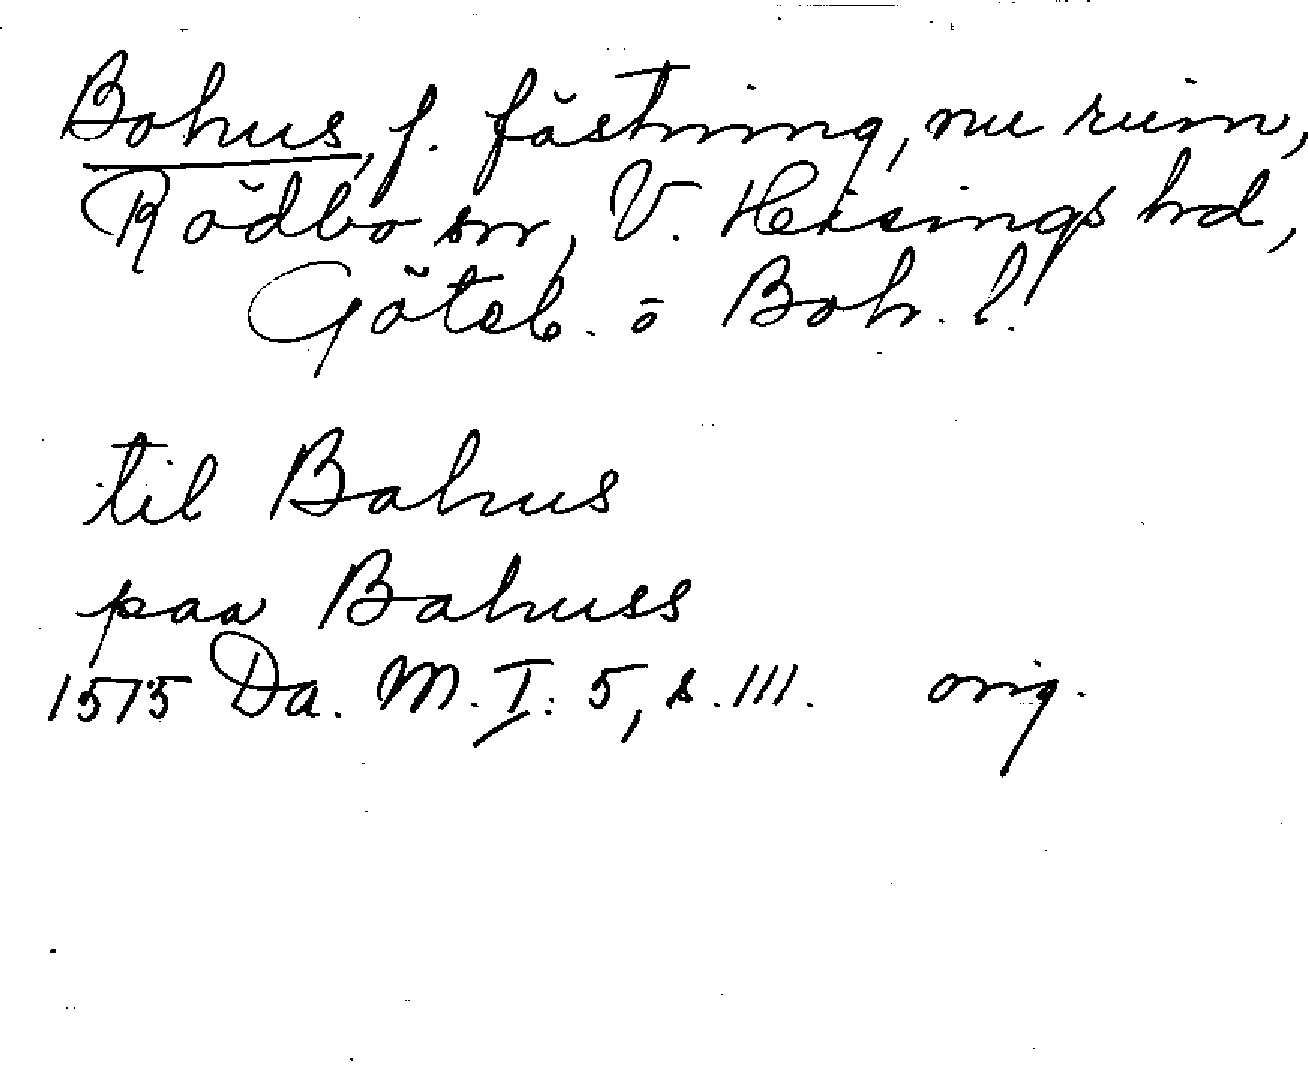 Bohus, f. fästning, nu ruin,
Rödbo sn, V. Hisings hd,
Göteb. o Boh. l.
til Bahus
paa Bahuss
1575 Da. M. I: 5, s. 111. orig.